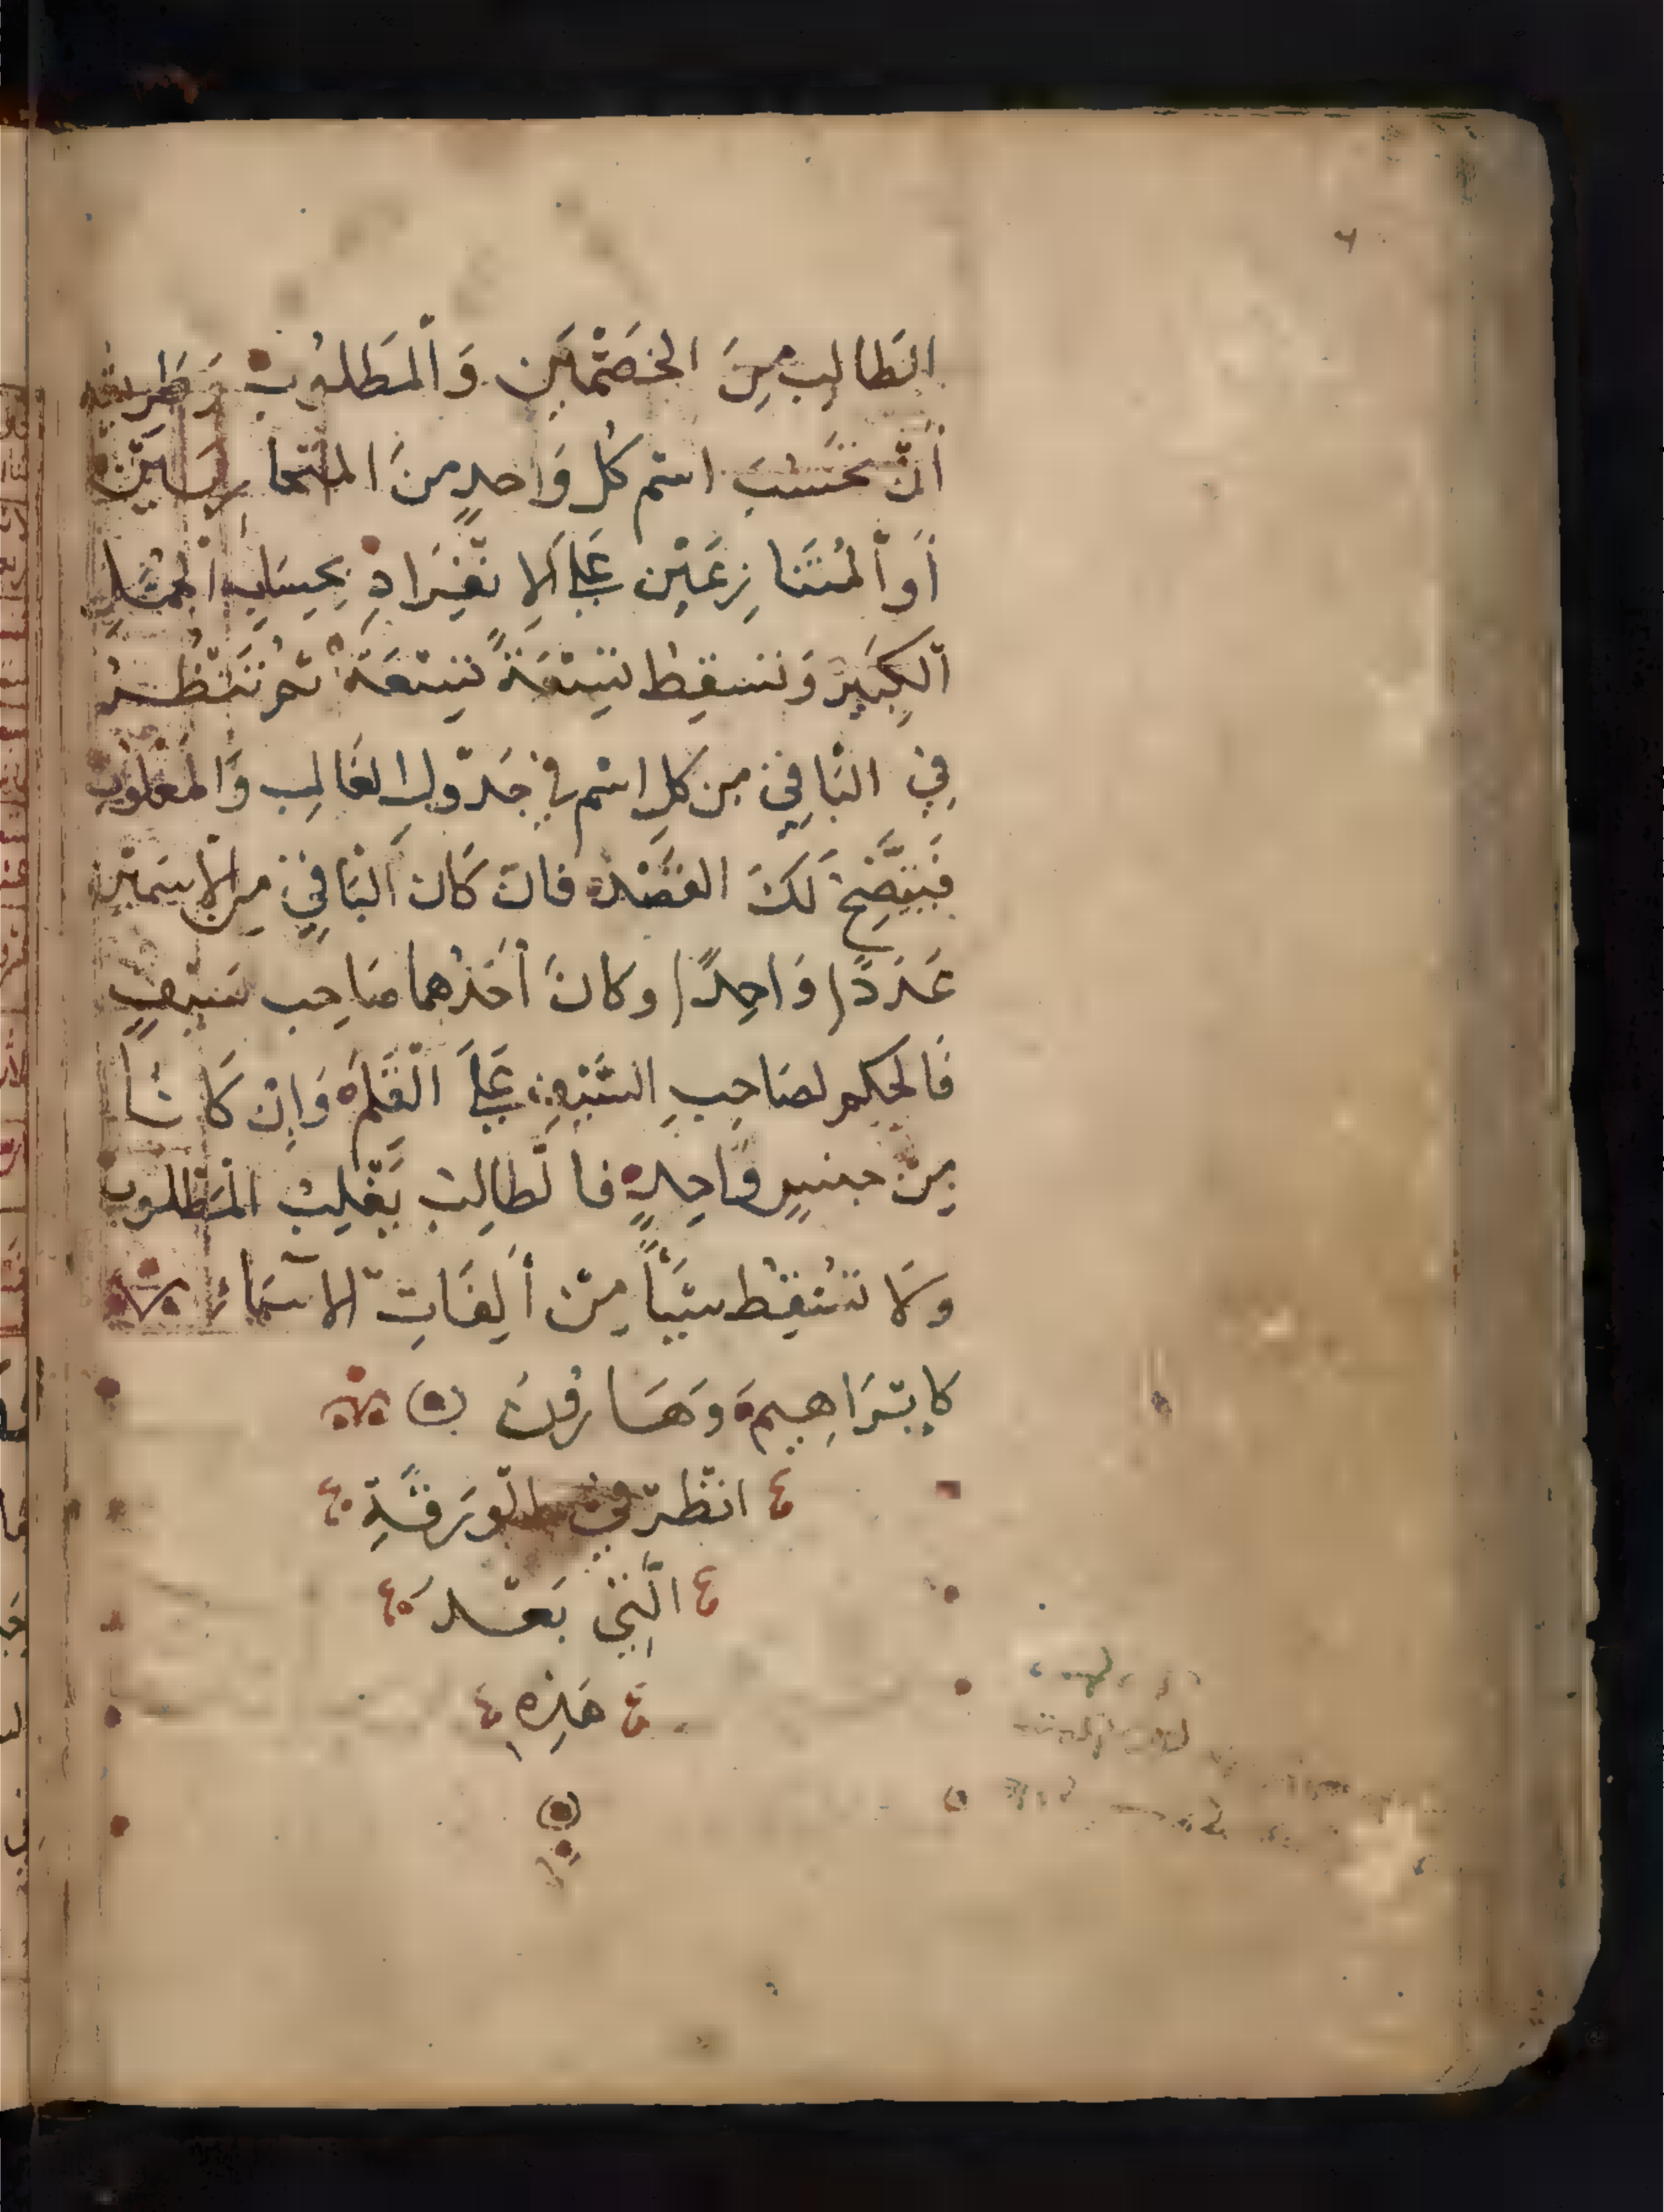 الطَالِب مِنَ الخَصْمَيْنِ وَالْمَطْلُوبْ وَطَرِيقُه
أَنْ تَحْسُبَ اسْم كُل وَاحِدٍ مِنَ المتحارِبَيْن
أَو الْمُتَنَازِعَيْن عَلَى الِانْفِرَادِ بِحِسَابِ الجُمَّلِ
الكَبِيرْ وَتُسْقِطْ تِسْعَةً تِسْعَةْ ثم تَنْظُرُ
فِي البَاقِي مِن كلِ اسْم في جَدْوَلِ الغَالِب وَالمَغْلُوب
فَيَتَّضِحْ لَكَ القَصْدْ فان كَانَ البَاقِي مِن الاسْمَيْن
عَدَدًا وَاحِدًا وكانَ أحَدُهما صَاحِب سَيْفٍ
فَالحكم لصَاحِبِ السَّيْفِ عَلَى الْقَلَم وَإنْ كَانَا
مِنْ جنسٍ وَاحِدٍ فالطَّالِبْ يَغْلِبُ الْمَطْلُوب
وَلَا تُسْقِطْ شَيْأً مِنْ أَلِفَاتِ الاَسْمَاءِ
كَإبْرَاهِيم وَهَارُون
انْظُرْ فِي الْوَرَقَةِ
الَّتِي بَعْدَ
هَذِهِ